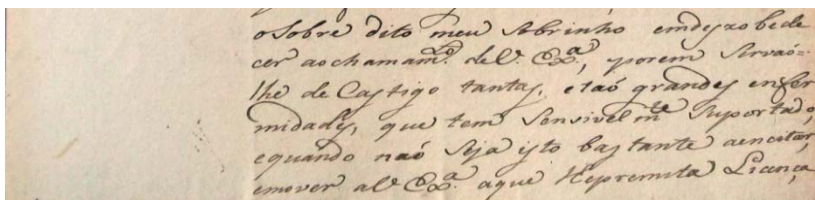 oSobre dito meu Sobrinho emdezobede
cer aochamam.to de V. Ex.a, porem Sirvaó=
lhe de Castigo tantas, etaó grandes enfer
midades, que tem Sensivelm.te Suportado,
equando naó Seja isto bastante aencitar,
emover aV. Ex.a aque lhepremita Licença